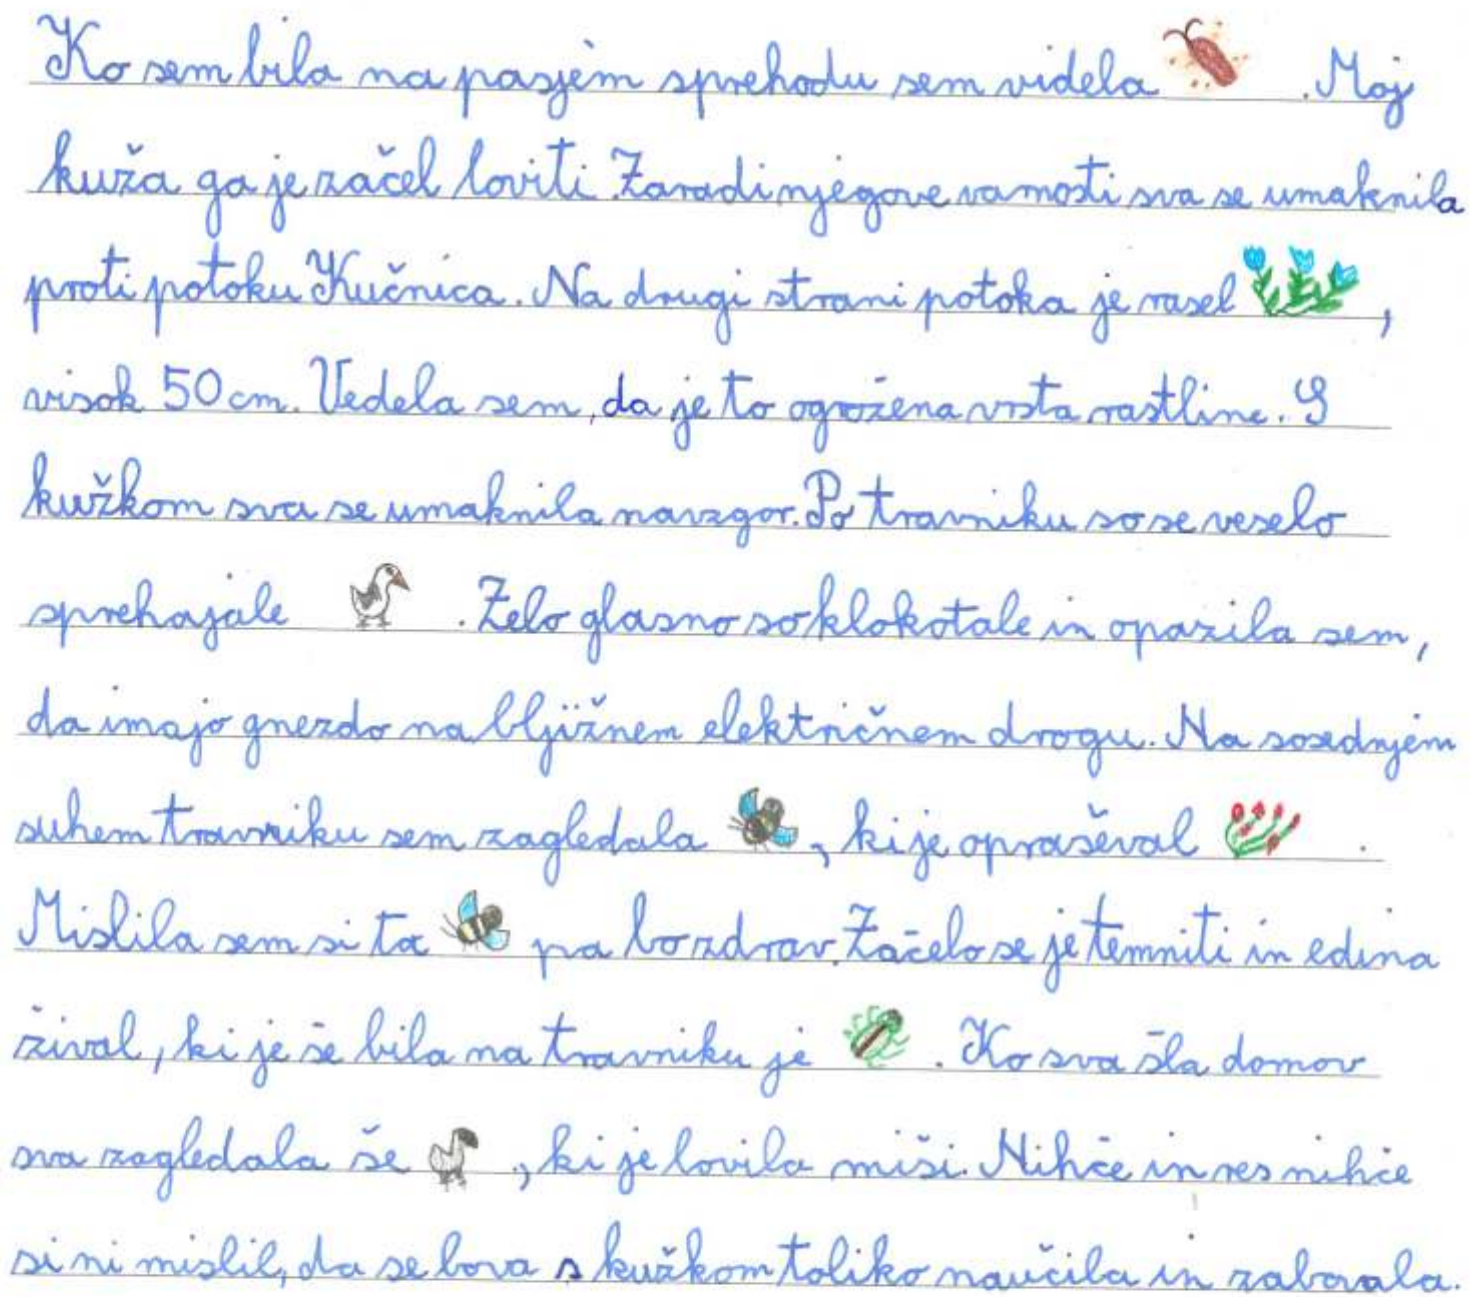 Ko sem bila na pasjem sprehodu sem videla . Moj
kuža ga je začel loviti. Zaradi njegove varnosti sva se umaknila
proti potoku Kučnica. Na drugi strani potoka je rasel ,
visok 50 cm. Vedela sem, da je to ogrožena vrsta rastline. S
kužkom sva se umaknila navzgor. Po travniku so se veselo
sprehajale . Zelo glasno so klokotale in opazila sem,
da imajo gnezdo na bljižnem električnem drogu. Na sosednjem
suhem travniku sem zagledala , ki je opraševal .
Mislila sem si ta pa bo zdrav. Začelo se je temniti in edina
žival, ki je še bila na travniku je . Ko sva šla domov
sva zagledala še , ki je lovila miši. Nihče in res nihče
si ni mislil, da se bova s kužkom toliko naučila in zabavala.